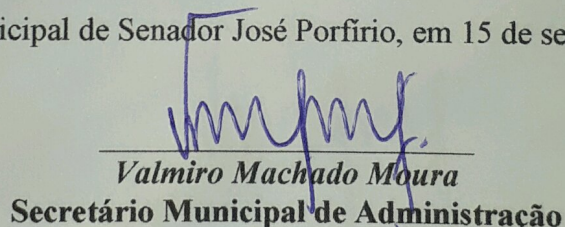 icipal de Senador José Porfírio, em 15 de se
Valmiro Machado Moura
Secretário Municipal de Administração